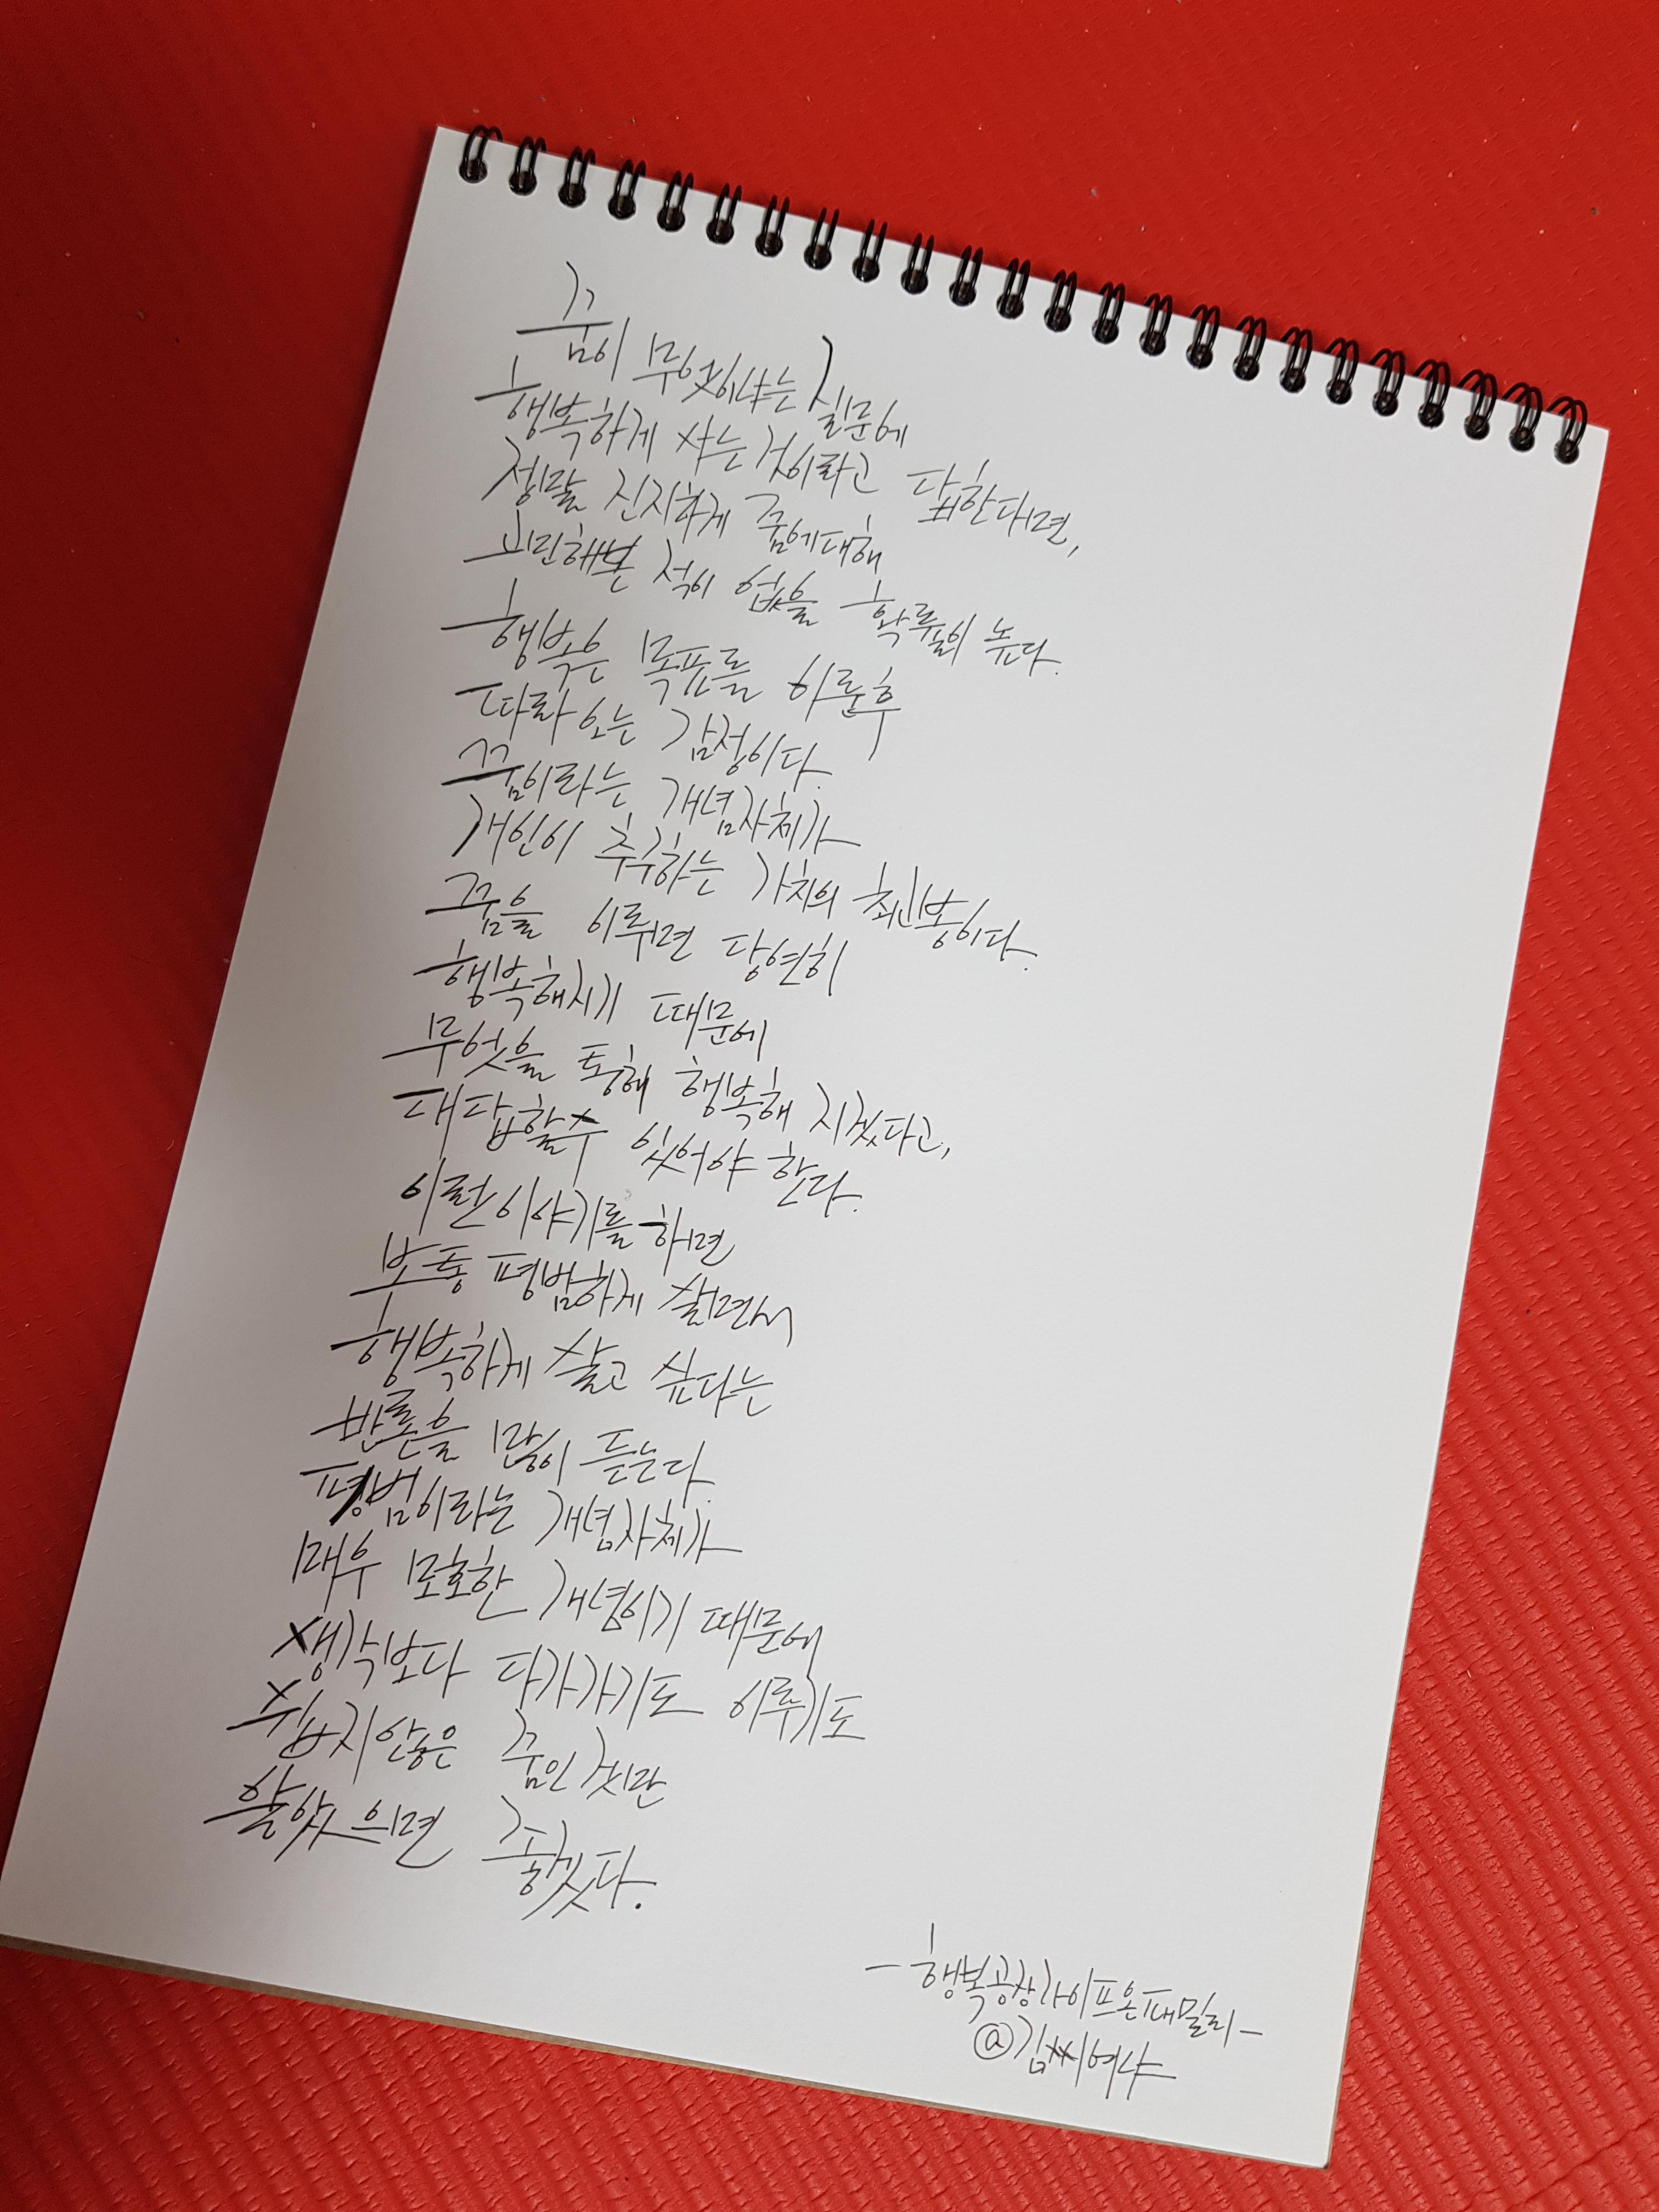 꿈이 무엇이냐는 질문에
행복하게 사는 것이라고 답한다면,
정말 진지하게 꿈에대해
고민해본 적이 없을 확률이 높다.
행복은 목표를 이룬후
따라오는 감정이다.
꿈이라는 개념자체가
개인이 추구하는 가치의 최고봉이다.
꿈을 이루면 당연히
행복해지기 때문에
무엇을 통해 행복해 지겠다고,
대답할수 있어야 한다.
이런이야기를 하면
보통 평범하게 살면서
행복하게 살고 싶다는
반론을 많이 듣는다.
평범이라는 개념자체가
매우 모호한 개념이기 때문에
생각보다 다가가기도 이루기도
쉽지않은 꿈인 것만
알았으면 좋겠다.
@김씨여나